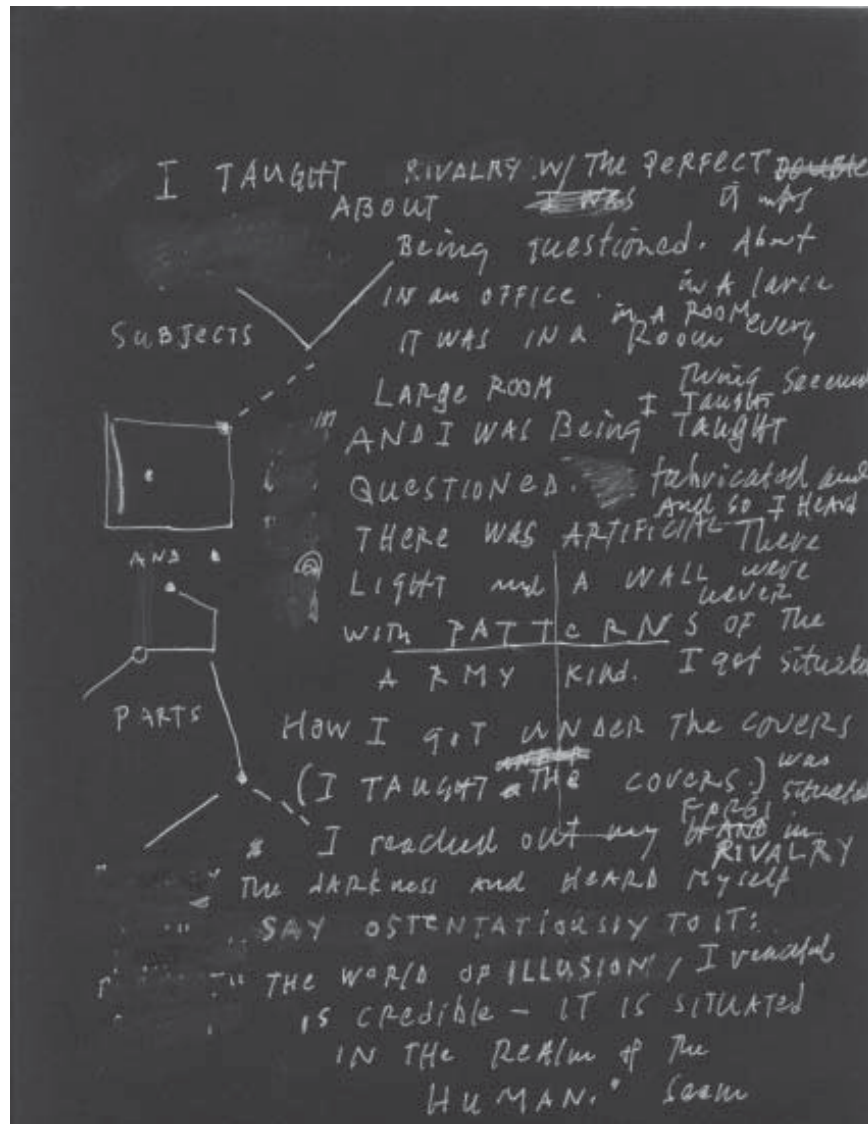 I TAUGHT RIVALRY W/ THE PERFECT DOUBLE
ABOUT I WAS it was
Being questioned. About
IN an OFFICE. in A large
SUBJECTS IT WAS IN a in A ROOM Room every
LARGE ROOM I Taught
AND I WAS Being TAUGHT
QUESTIONED. fabricated and
And so I HEARD
THERE WAS ARTIFICIAL There
AND LIGHT and A WALL were
never
with PATTERNS OF The
ARMY KIND. I got situated
PARTS HOW I got UNDER The COVERS
(I TAUGHT THE COVERS.) was situated
I reached out my HAND in
RIVALRY
The DARKNESS and HEARD Myself
SAY OSTENTATIOUSLY TO IT:
THE WORLD OF ILLUSION, I
IS CREDIBLE – IT IS SITUATED
IN THE REALM of The
HUMAN." Seem